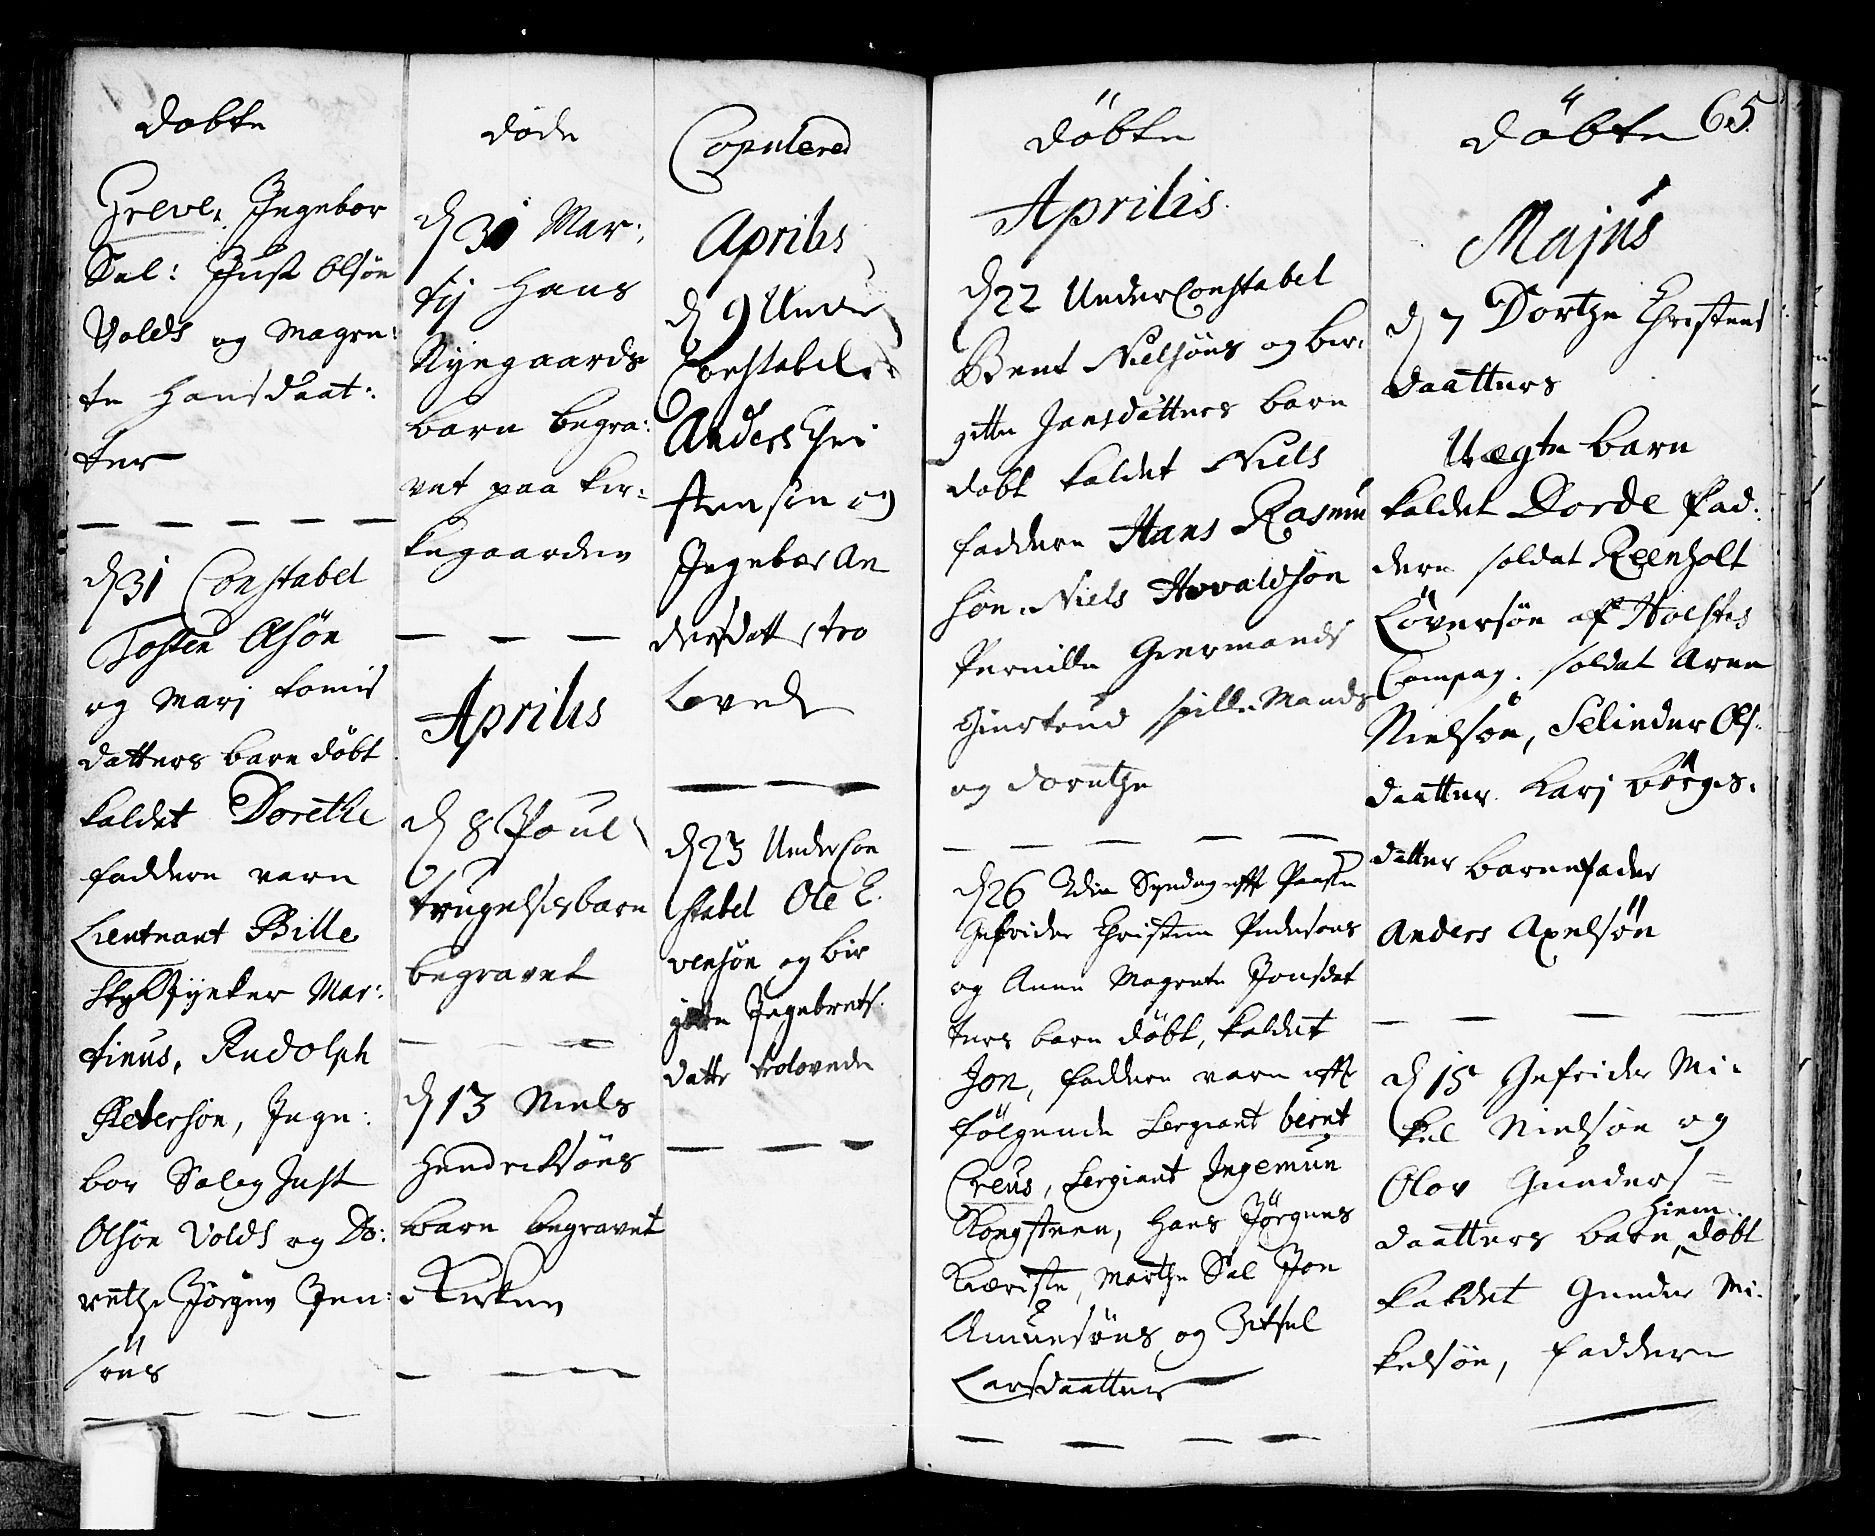 Døbte
Greve. Ingebor
Sal: Just Olsøn
Volds og Magre:
te Hansdaat:
ter
d 31 Constabel
Tosten Olsøn
og Marj Tomis
datters barn døbt
kaldet Dorethe
faddere vare
Lieutnant Bille
Mar:
tinus, Rudolph
Petersøn, Inge:
bor Salig Just
Olsøn Volds og Do:
rethe Jørgen Jen:
søns
døde
d 31 Mar:
tij Hans
Nyegaards
barn begra:
vet paa kir:
kegaarden
Aprilis
d 8 Poul
Trugelses barn
begravet
d 13 Niels
Hendriksøns
barn begravet
i Kirken
Copulered
Aprilis
d 9 Under
Constabel
Anders Chri
stensen og
Ingebor An
dersdatt tro
loved
d 23 Under Con
stabel Ole E.
vensøn og bir
gitte Ingebrets.
datter trolovede
døbte
Aprilis.
d 22 Under Constabel
Bent Nielsøns og bir:
gitte Jansdatters barn
døbt kaldet Niels
faddere Hans Rasmu
søn. Niels Hovaldsøn
Pernille Giermands
Giertrud spille Mands
og Dorethe
d 26 2den Syndag efft Paaske
Gefrider Christen Pedersøns
og Anne Magrete Jonsdat
ters barn døbt, kaldet
Jon, faddere vare efft
følgende Sergiant bernt
Creus, Sergiant Ingemun
Kongsteen, Hans Jørgens
Kieriste, Marthe Sal Jon
Amunsøns og Zitsel
Larsdaatter
døbte 65.
Majus
d 7 Dorthe Christens
daatters
Uægte barn
kaldet Dorde fad:
dere soldat Reenholt
Løversøn af Holstes
Compag. soldat Aren
Nielsøn, Selinder Ols:
daatter Karj Børges.
datter barnefader
Anders Axelsøn
d 15 Gefrider Mi:
kel Nielsøn og
Olov Gunders=
hiem..
daatters barn døbt
kaldet Gunder Mi:
kelsøn, faddere